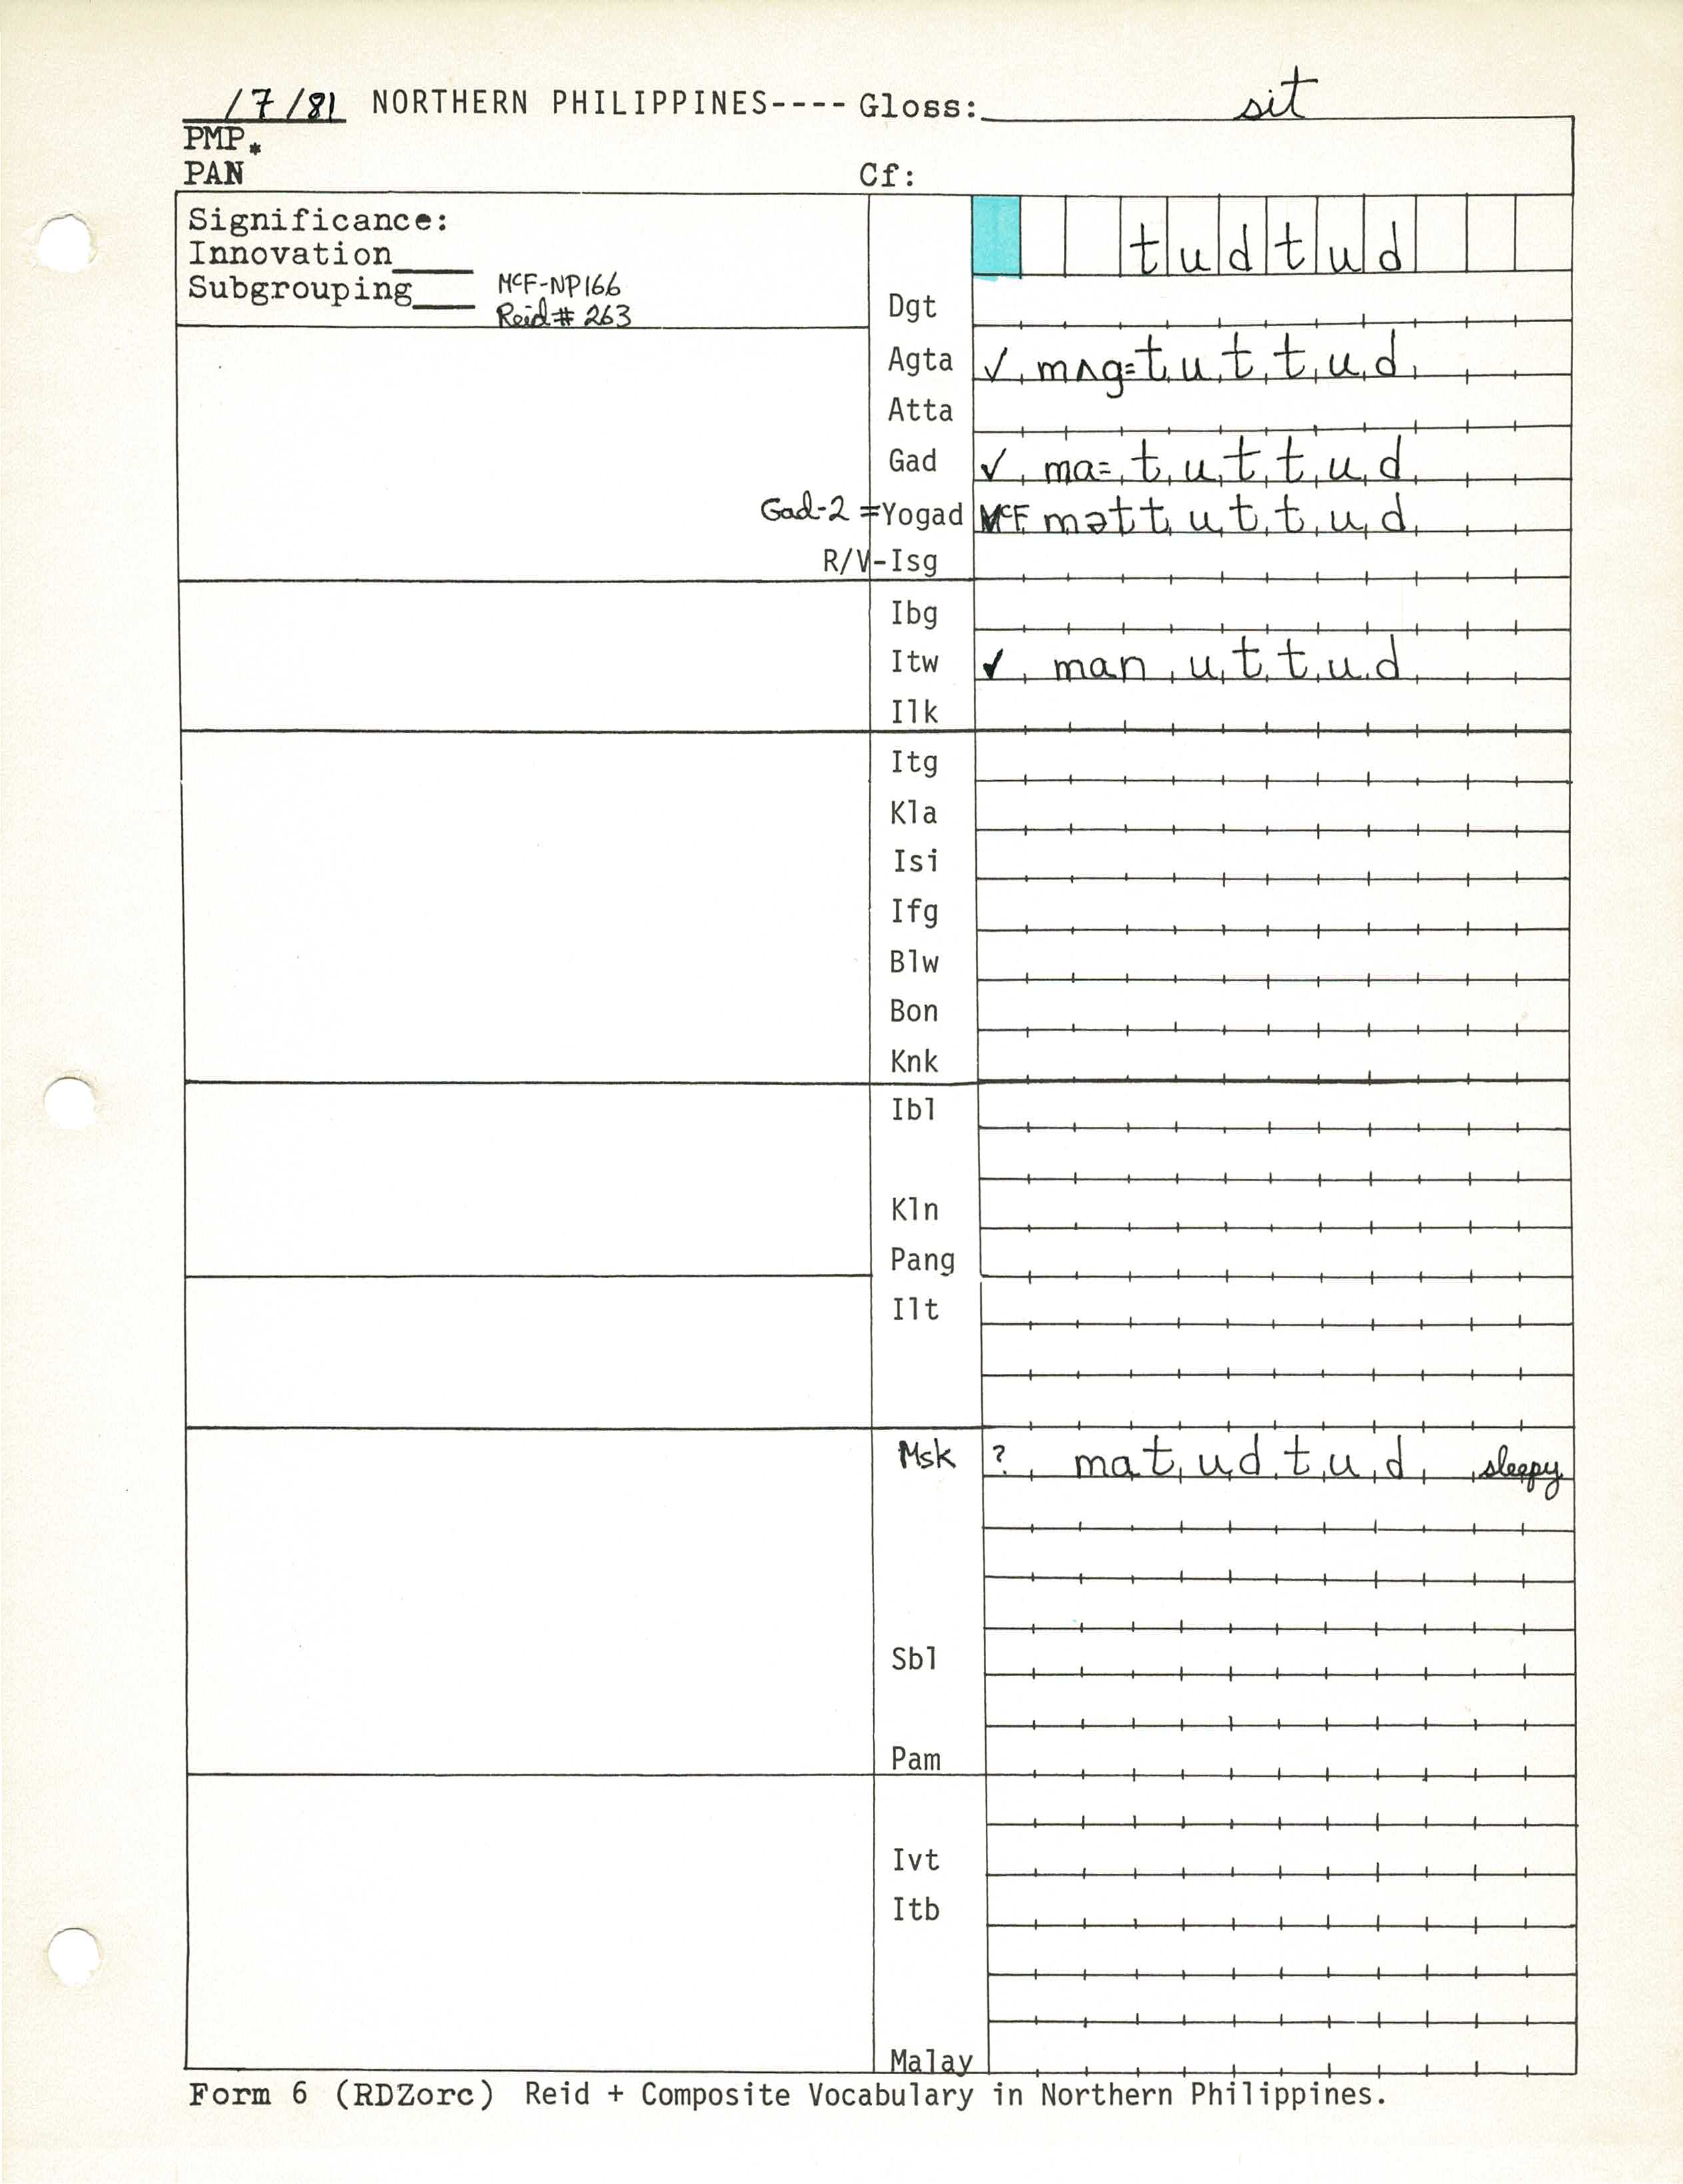 /7/81 NORTHERN PHILIPPINES---- Gloss: sit
PMP*
PAN Cf:
Significance:
Innovation____
Subgrouping____ McF-NP166
Reid# 263
tudtud
Dgt
Agta ✓ mʌg=tuttud
Atta
Gad ✓ ma=tuttud
Gad-2 =Yogad McF mәttuttud
R/V-Isg
Ibg
Itw ✓ man uttud
Ilk
Itg
Kla
Isi
Ifg
Blw
Bon
Knk
Ibl
Kln
Pang
Ilt
Msk ? matudtud sleepy
Sbl
Pam
Ivt
Itb
Malay
Form 6 (RDZorc) Reid + Composite Vocabulary in Northern Philippines.